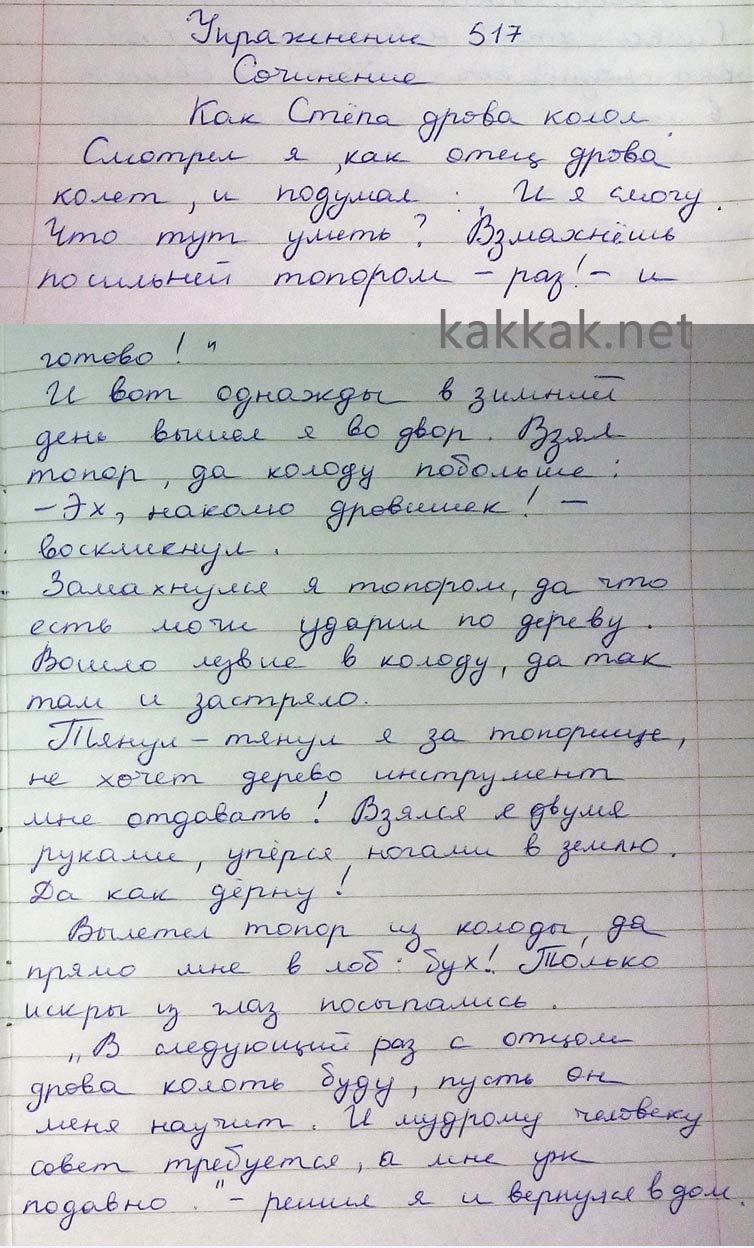 Упражнение 517
Сочинение
Как Стёпа дрова колол.
Смотрел я, как отец дрова
колет, и подумал: „И я смогу.
Что тут уметь? Взмахнёшь
посильней топором – раз! – и
kakkak.net
готово!"
И вот однажды в зимний
день вышел я во двор. Взял
топор, да колоду побольше:
– Эх, наколю дровишек! –
воскликнул.
Замахнулся я топором, да что
есть мочи ударил по дереву.
Вошло лезвие в колоду, да так
там и застряло.
Тянул – тянул я за топорище,
не хочет дерево инструмент
мне отдавать! Взялся я двумя
руками, упёрся ногами в землю.
Да как дёрну!
Вылетел топор из колоды, да
прямо мне в лоб: бух! Только
искры из глаз посыпались.
„В следующий раз с отцом
дрова колоть буду, пусть он
меня научит. И мудрому человеку
совет требуется, а мне уж
подавно." – решил я и вернулся в дом.